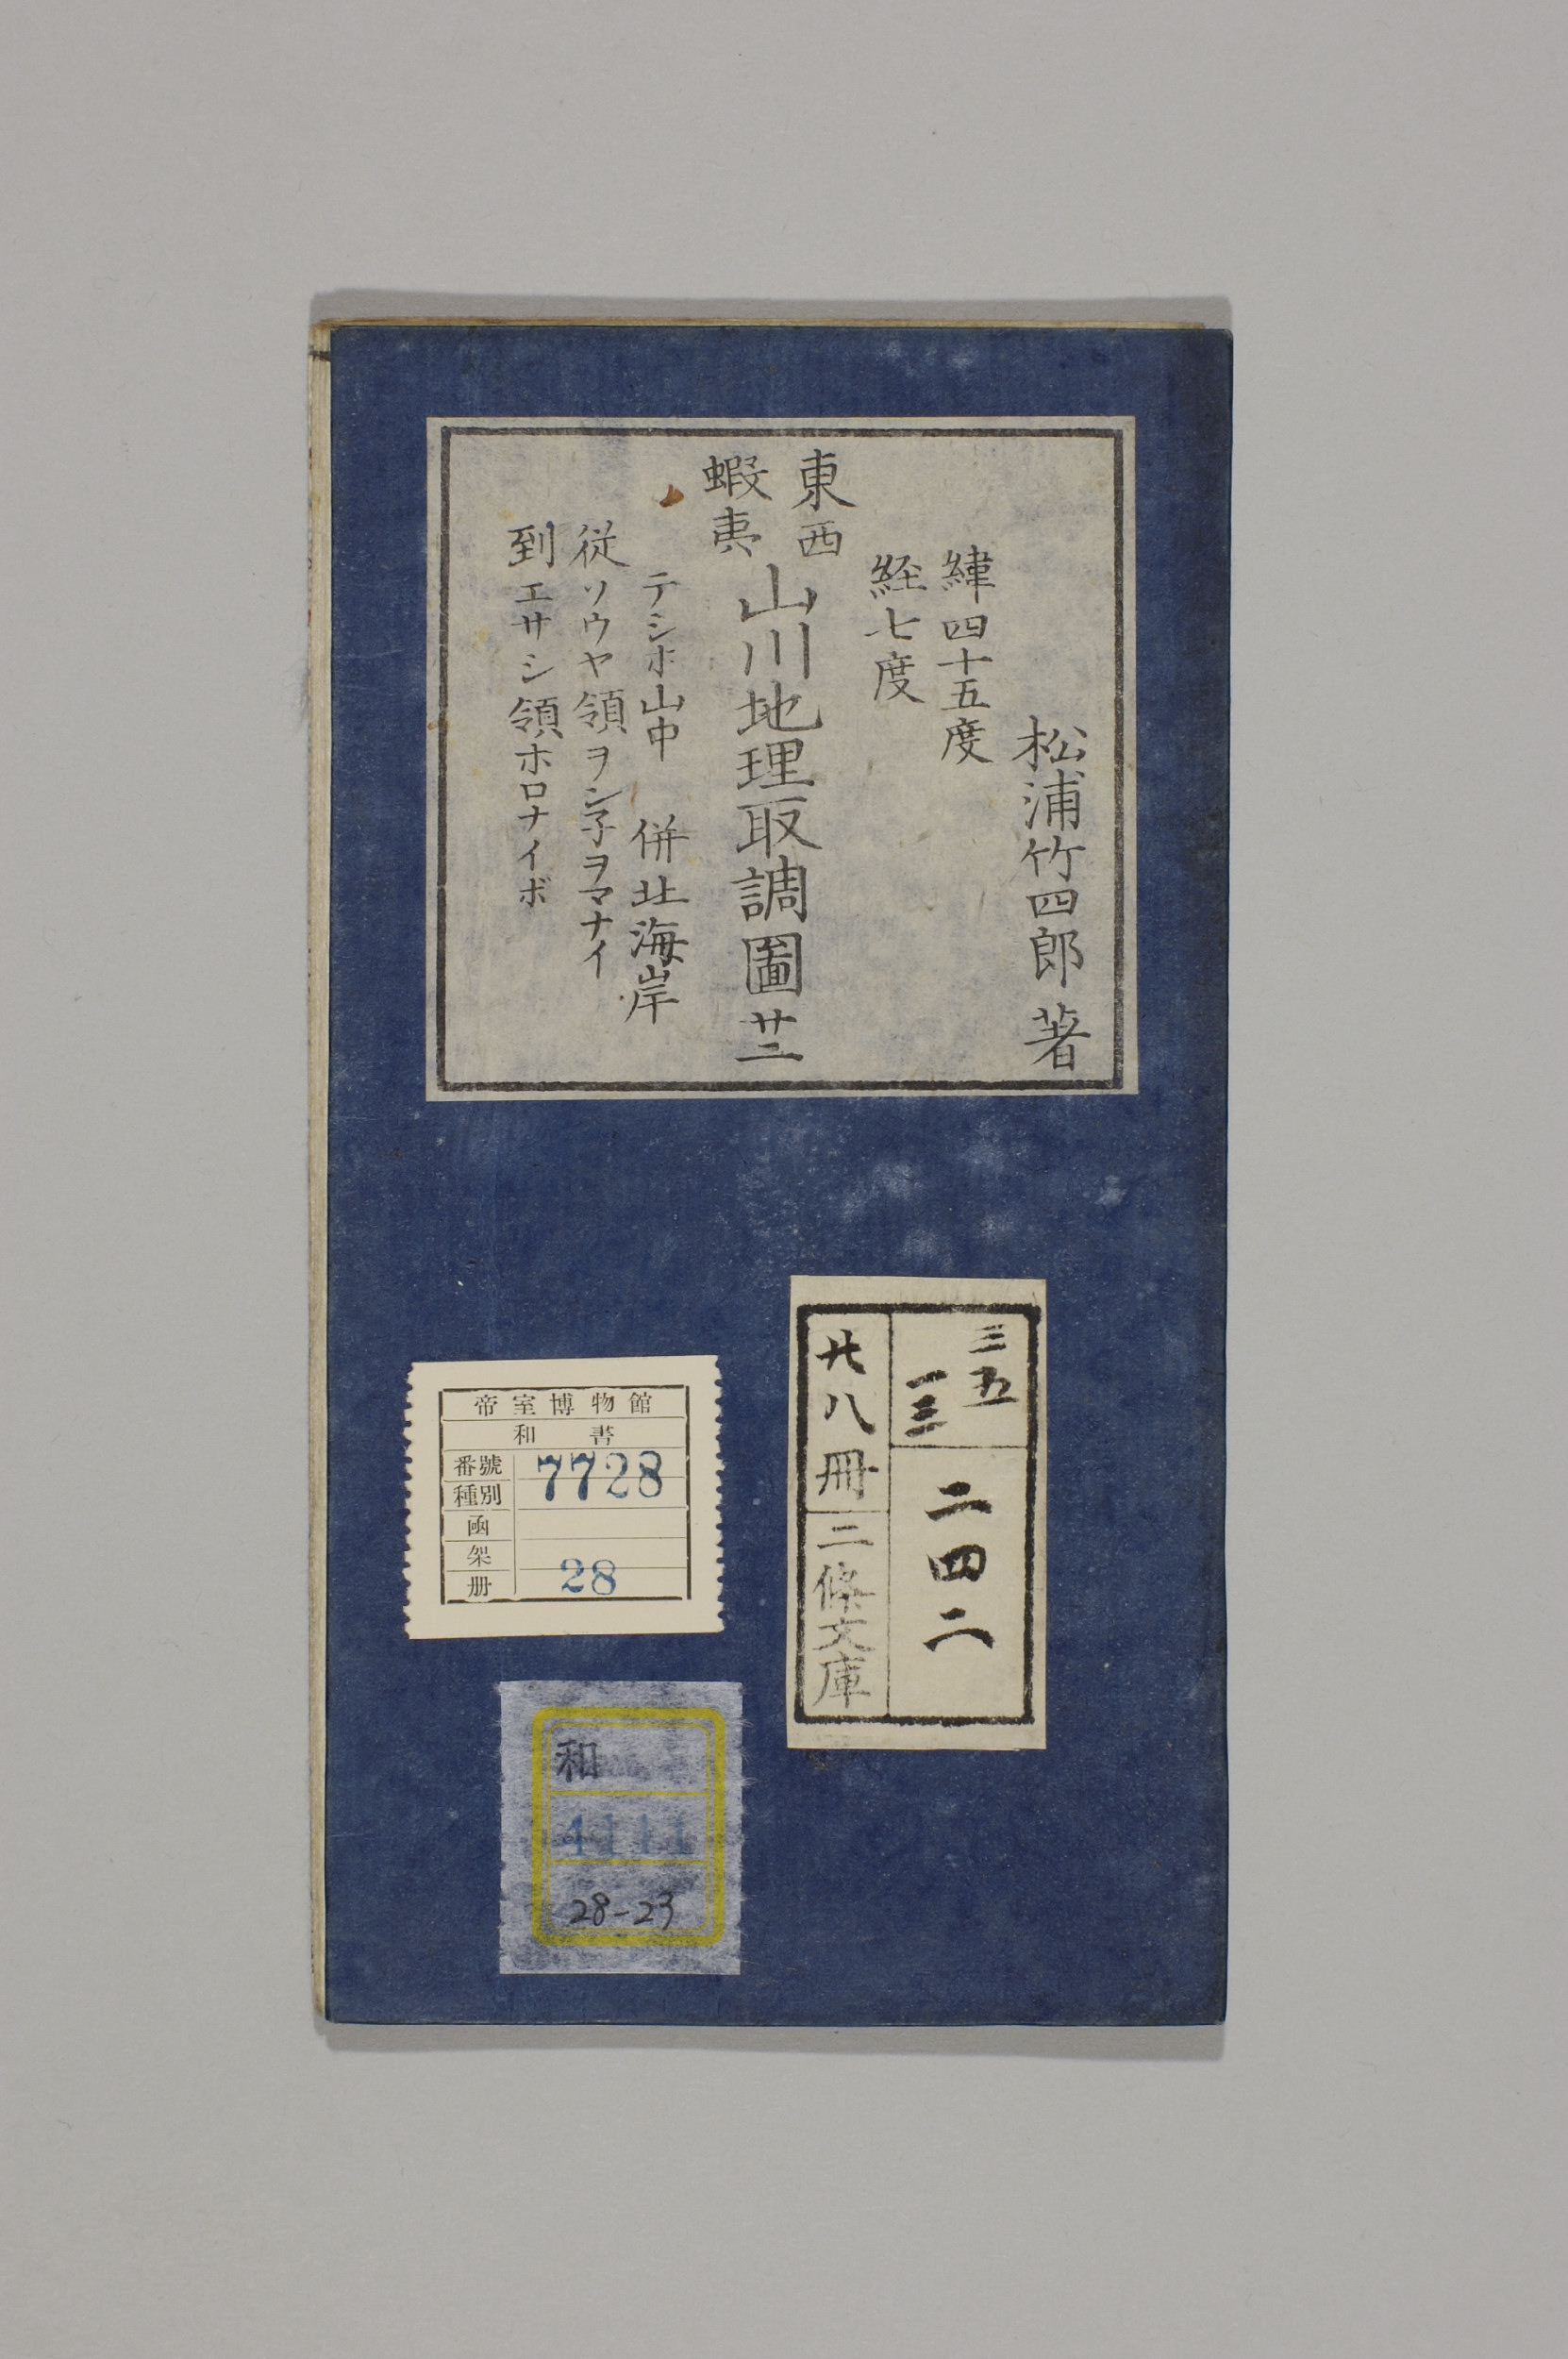 松浦竹四郎著
緯四十五度
経七度
東西
蝦夷
山川地理取調圖廿二
テシホ山中 併北海岸
従ソウヤ領ヲシ子ヲマナイ
到エサシ領ホロナイボ
三五
一三
二四二
廿八冊
二條文庫
帝室博物館
和書
番號 7728
種別
函
架
册 28
和
4111
28-23